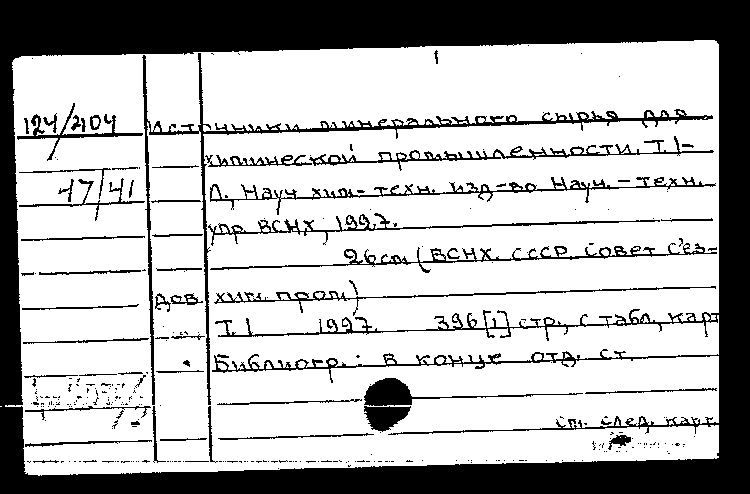 124/404 Источники минерального сырья для
химической промышленности. Т. I-
47/41 Л., Науч хим-техн. изд-во Науч.-техн.
упр ВСНХ, 1927.
26 см (ВСНХ. СССР. Совет с'ез-
дов хим. пром)
Т. I 1927. 396 [1] стр., с табл., карт
Библиогр.: в конце отд. ст.
См. след. карт.